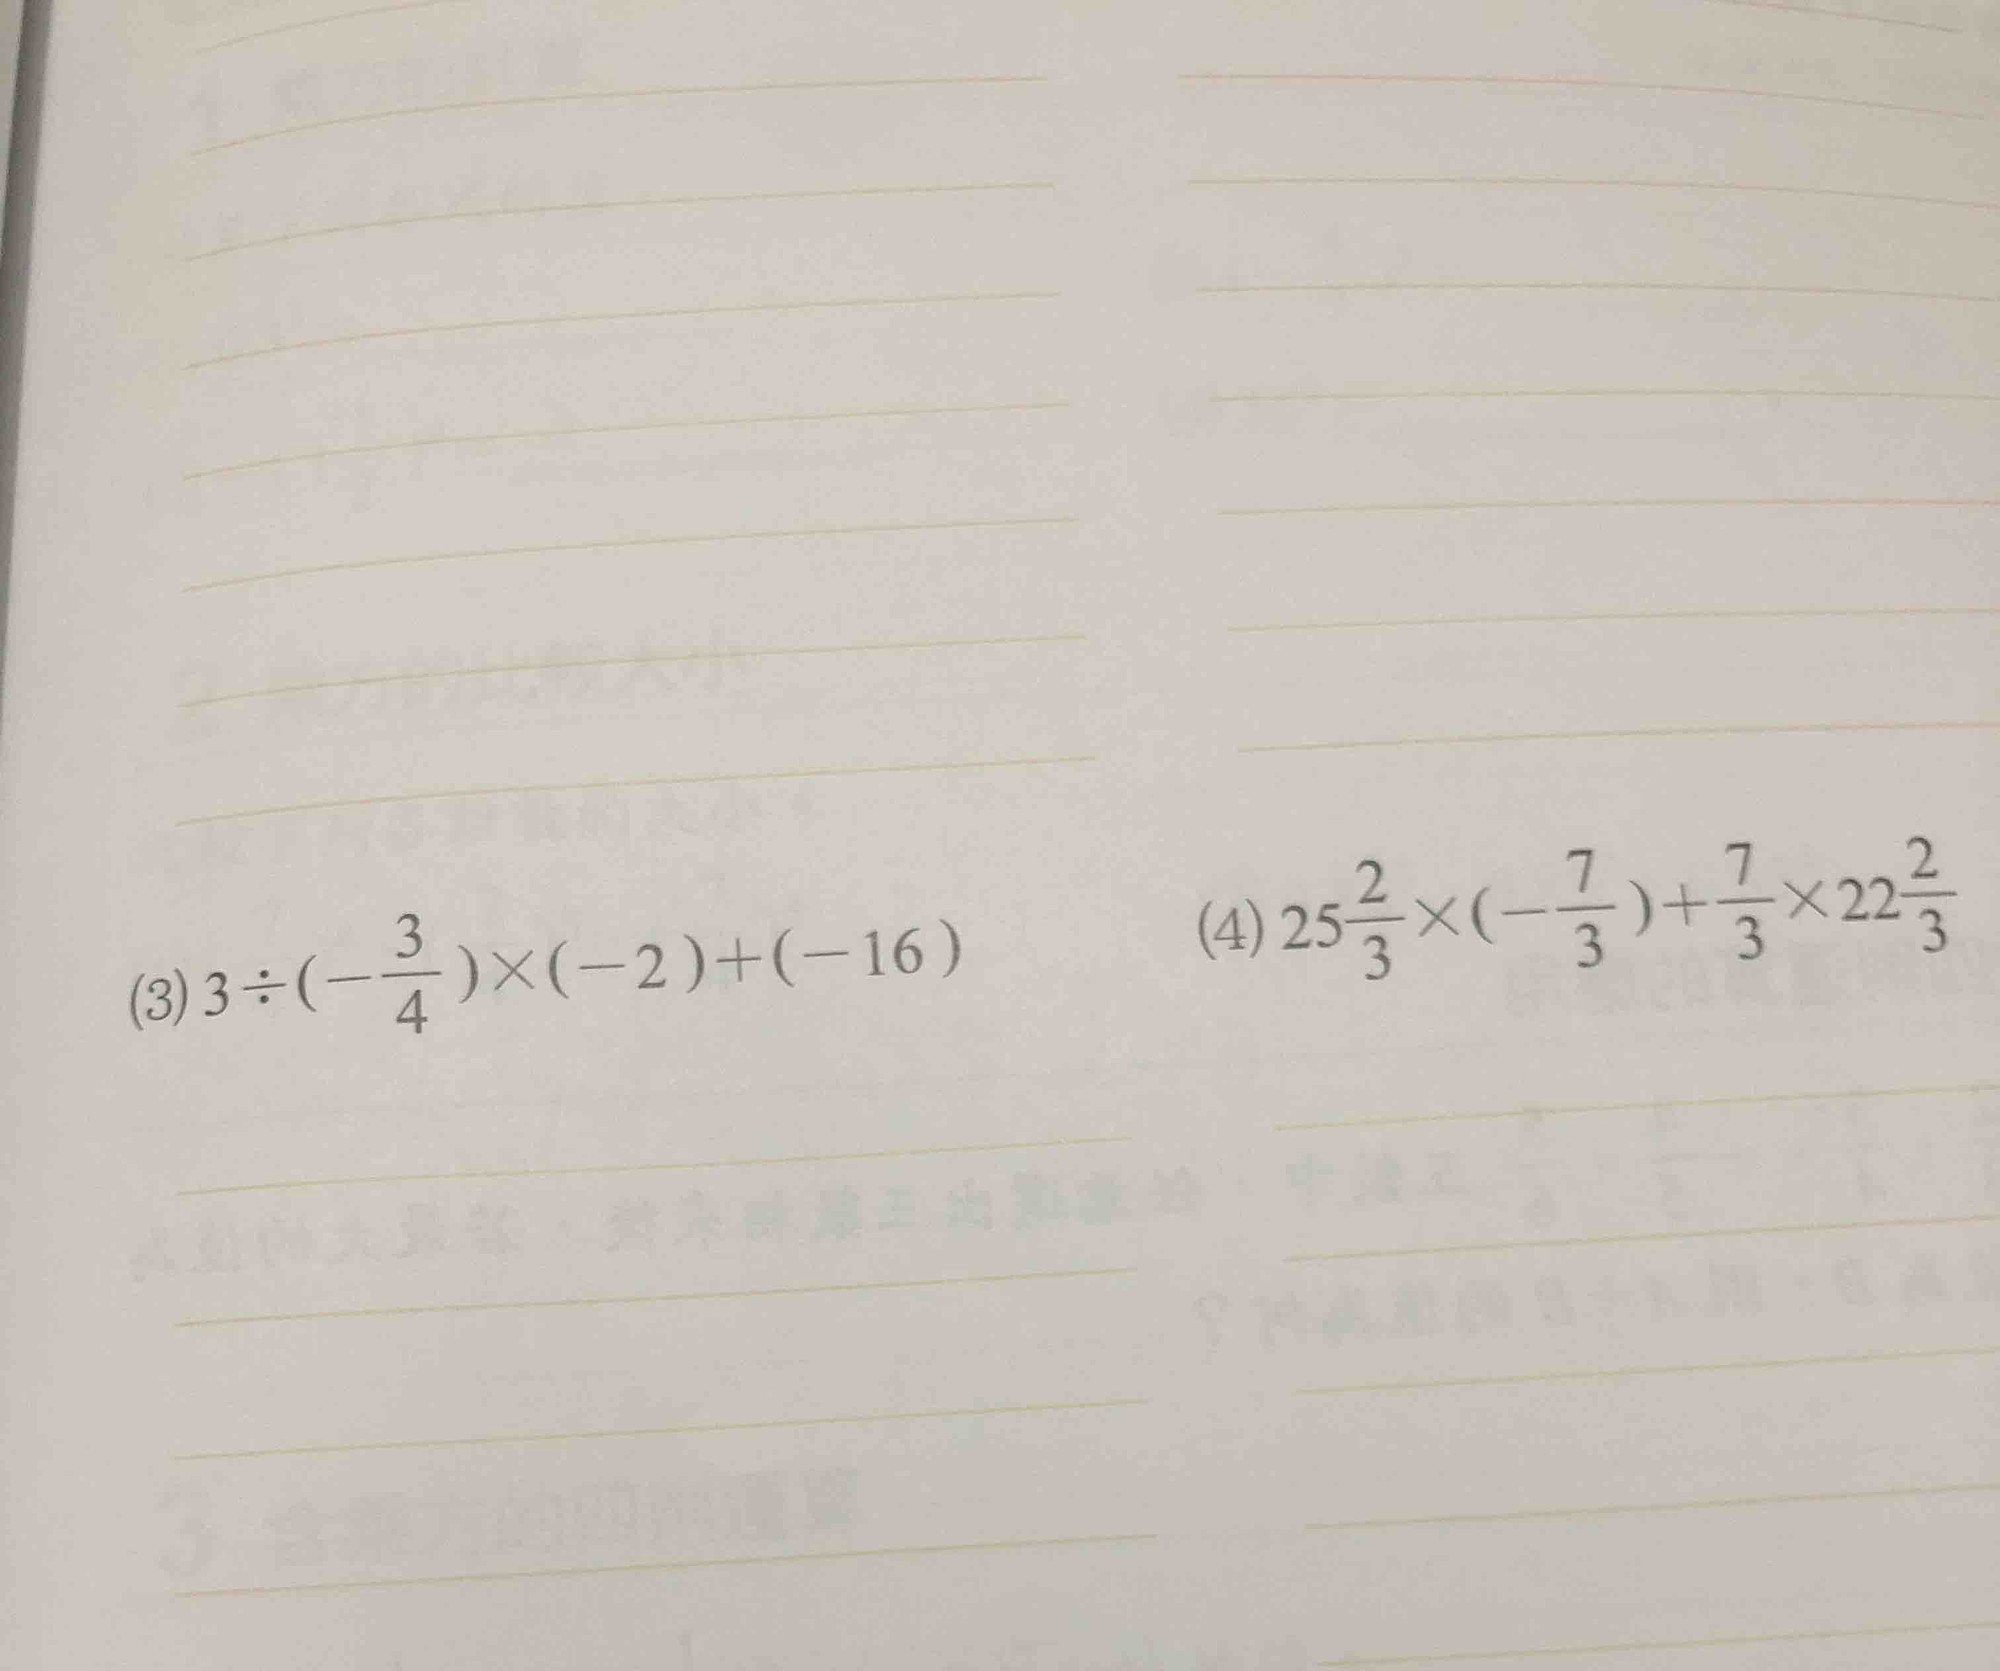 (3) 3÷(−3/4)×(−2)+(−16)
(4) 25 2/3×(−7/3)+7/3×22 2/3